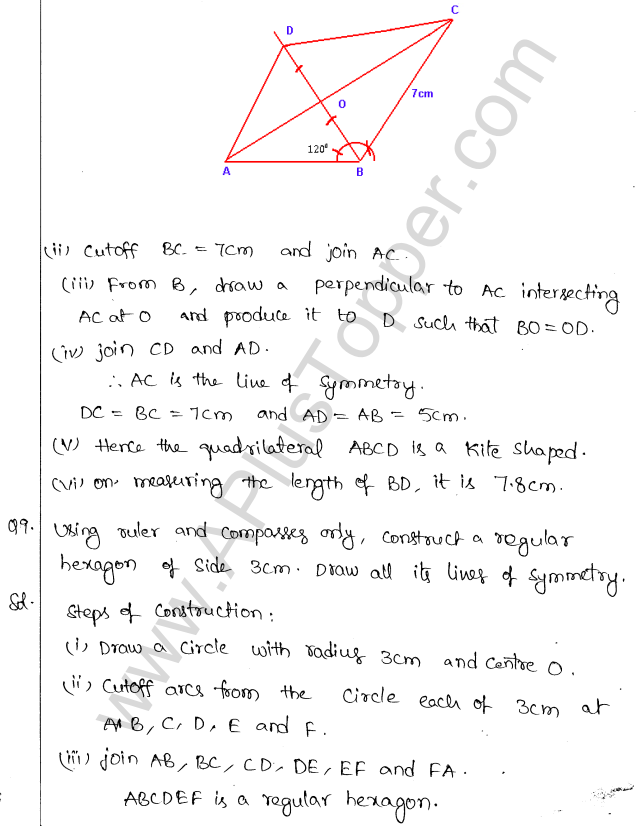 C
D
O
7cm
120°
A
B
(ii) Cutoff BC = 7cm and join AC.
(iii) From B, draw a perpendicular to AC intersecting
AC at O and produce it to D such that BO = OD.
(iv) join CD and AD.
∴ AC is the line of symmetry.
DC = BC = 7cm and AD = AB = 5cm.
(v) Hence the quadrilateral ABCD is a kite shaped.
(vi) on measuring the length of BD, it is 7.8cm.
Q9. Using ruler and compasses only, construct a regular
hexagon of side 3cm. Draw all its lines of symmetry.
Sol. Steps of construction:
(i) Draw a circle with radius 3cm and centre O.
(ii) Cutoff arcs from the circle each of 3cm at
A, B, C, D, E and F.
(iii) join AB, BC, CD, DE, EF and FA.
ABCDEF is a regular hexagon.
www.APlusTopper.com